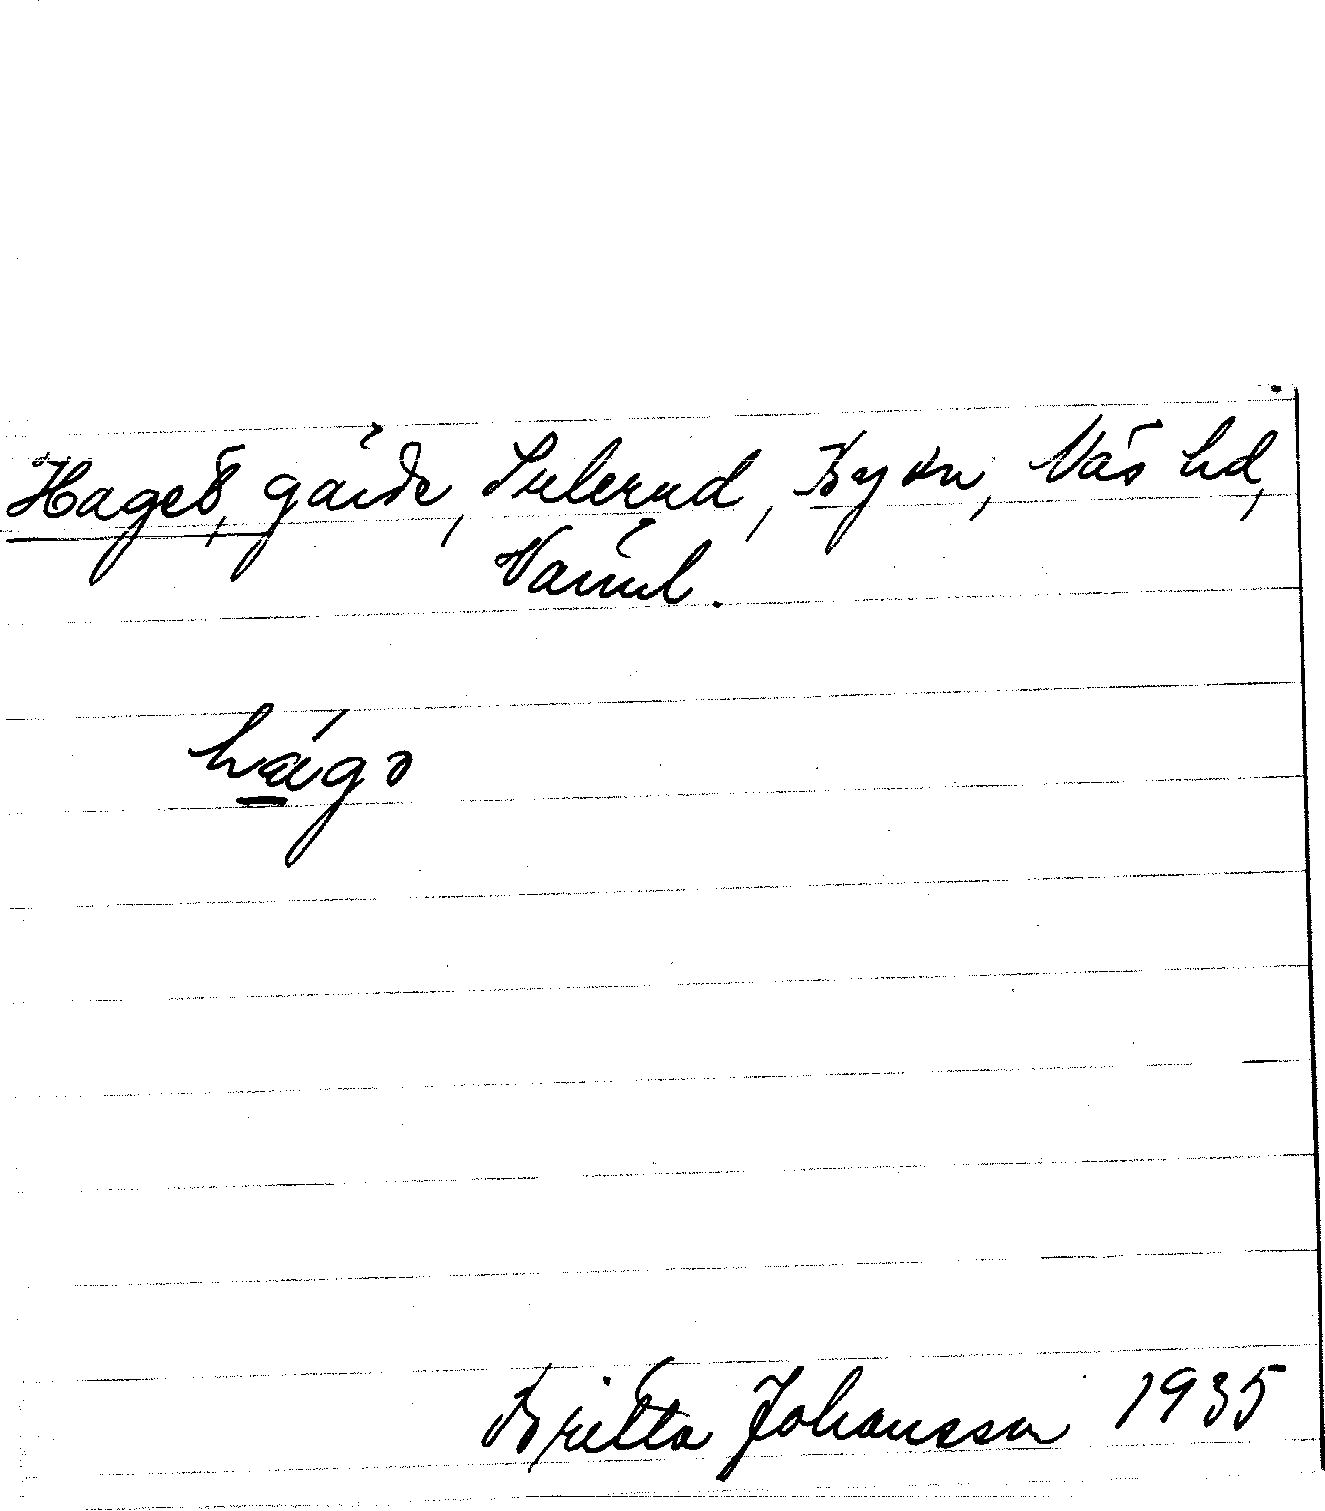 Hageb, gärde, Sulerud, By sn, Näs hd,
Värml.
hágə
Britta Johansson 1935